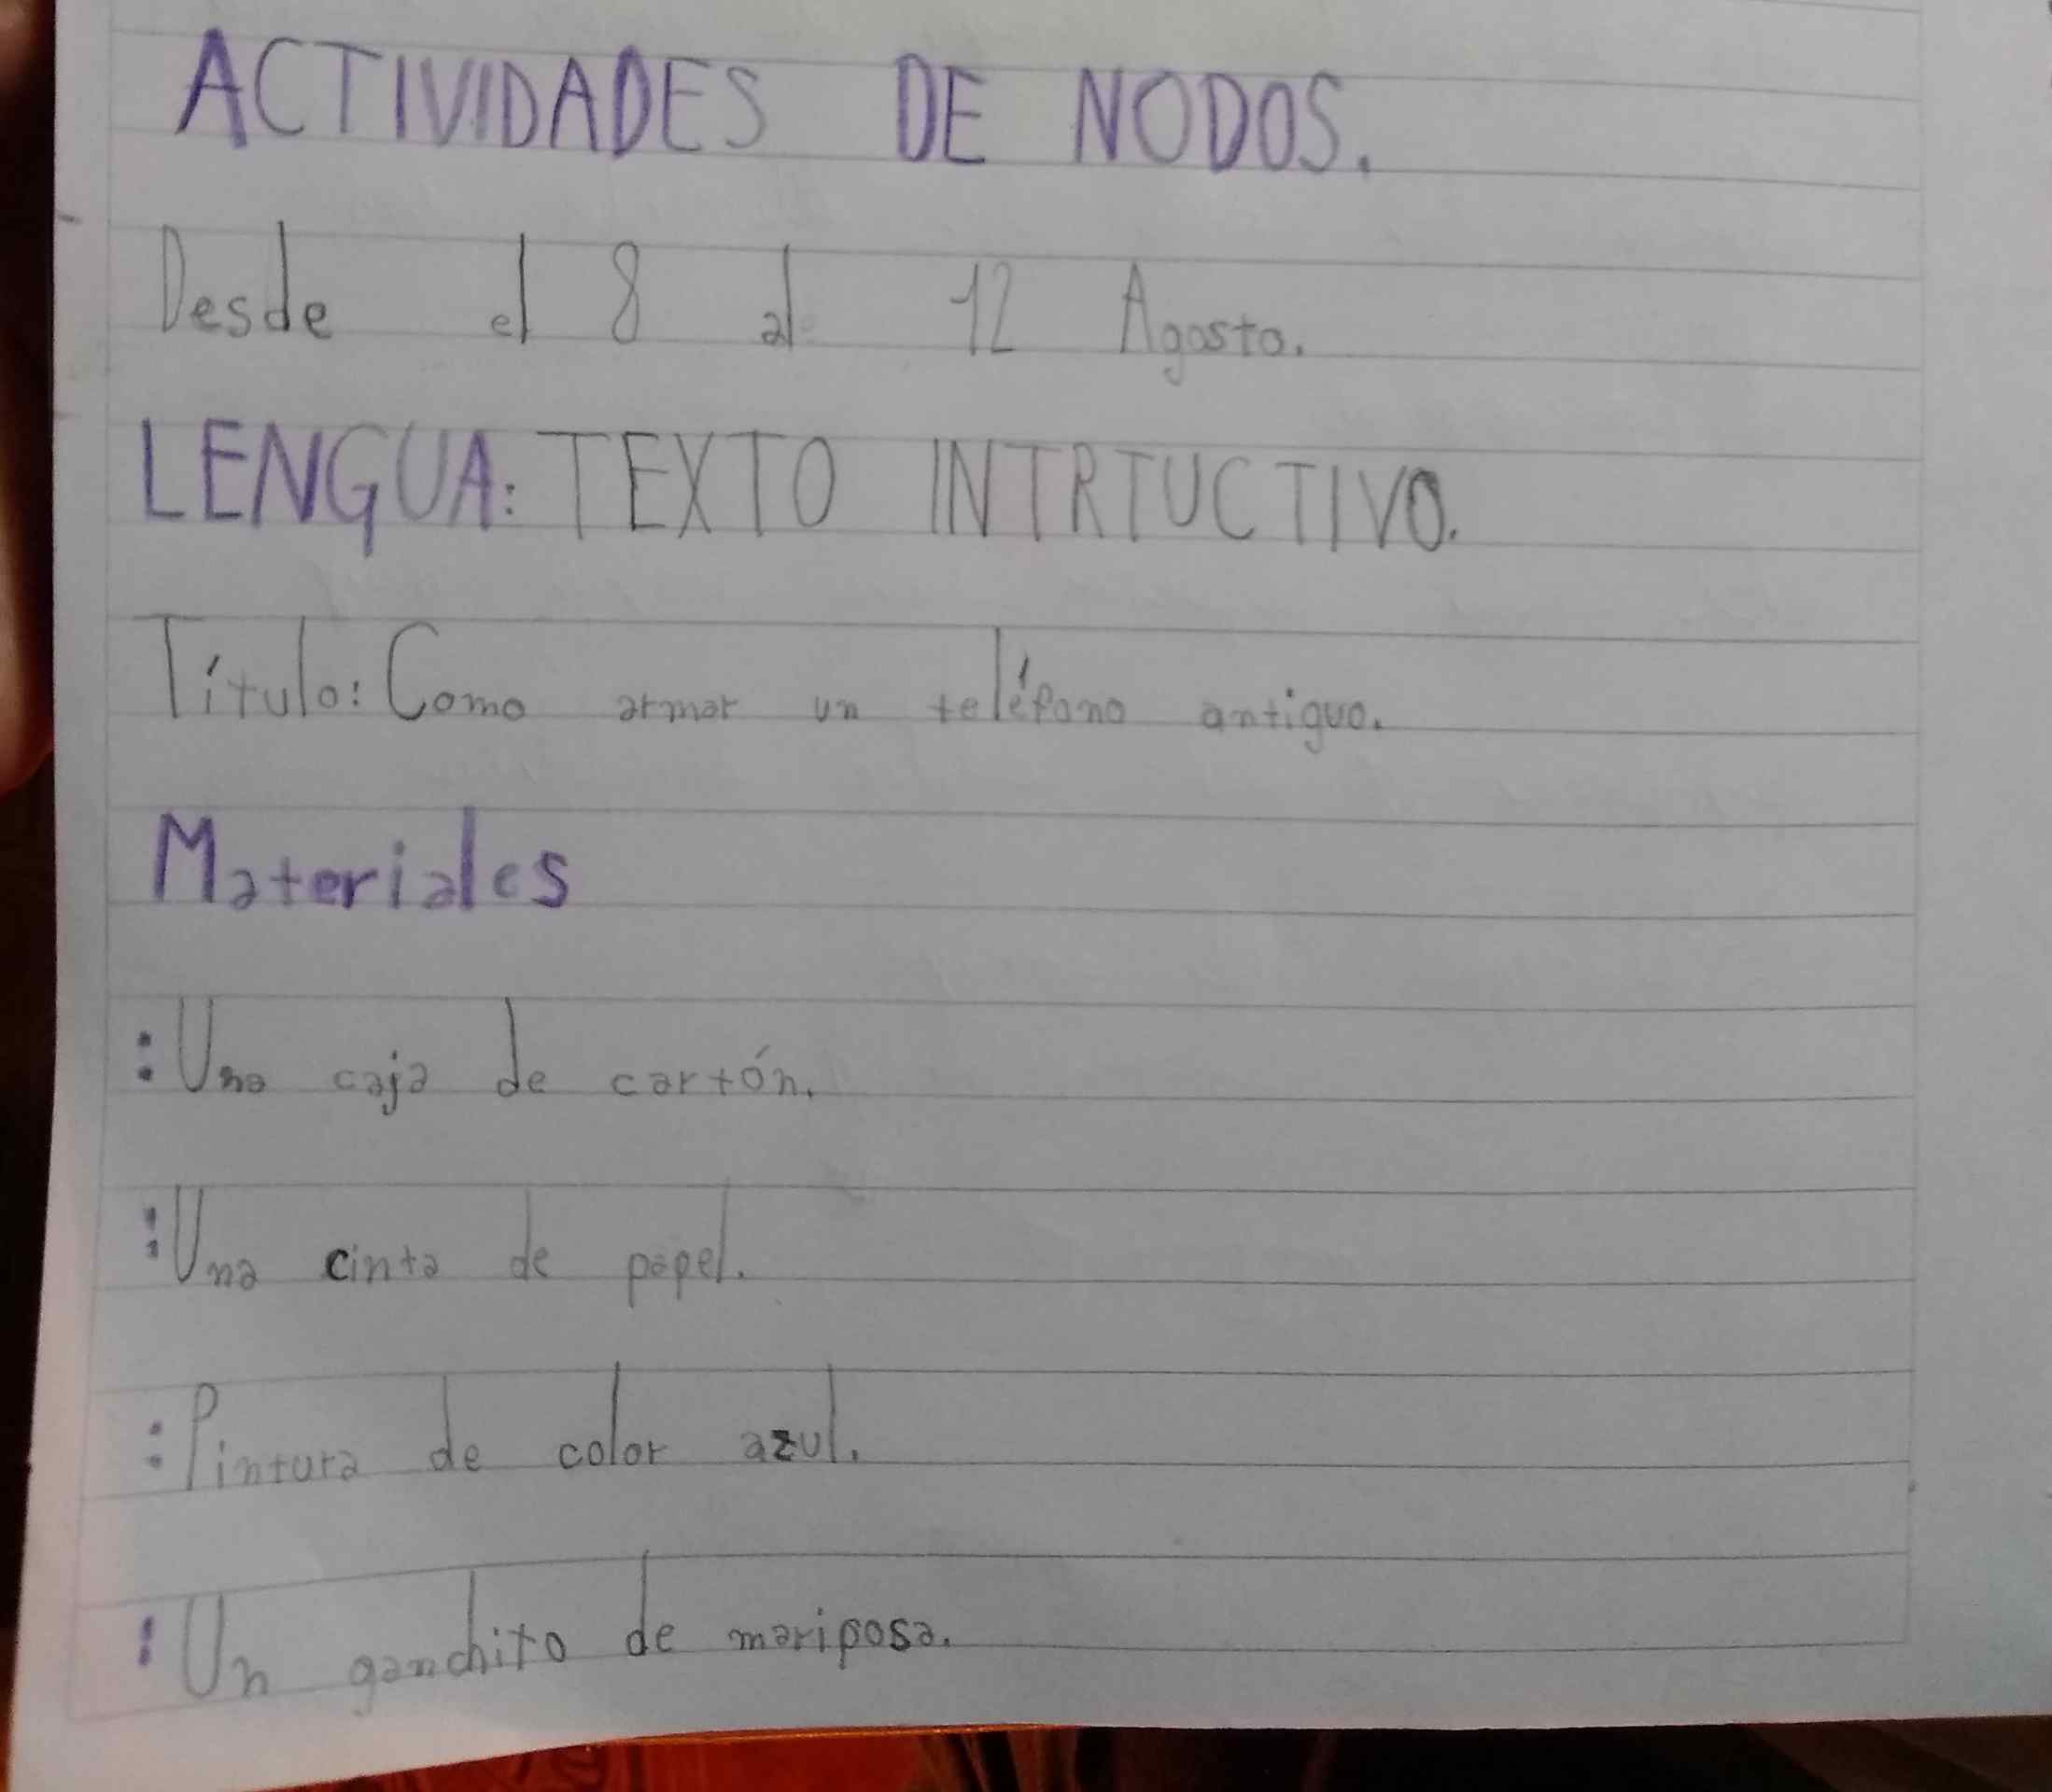 ACTIVIDADES DE NODOS.
Desde el 8 al 12 Agosto.
LENGUA: TEXTO INTRTUCTIVO.
Título: Como armar un teléfono antiguo.
Materiales
: Una caja de cartón.
: Una cinta de papel.
: Pintura de color azul.
: Un ganchito de mariposa.